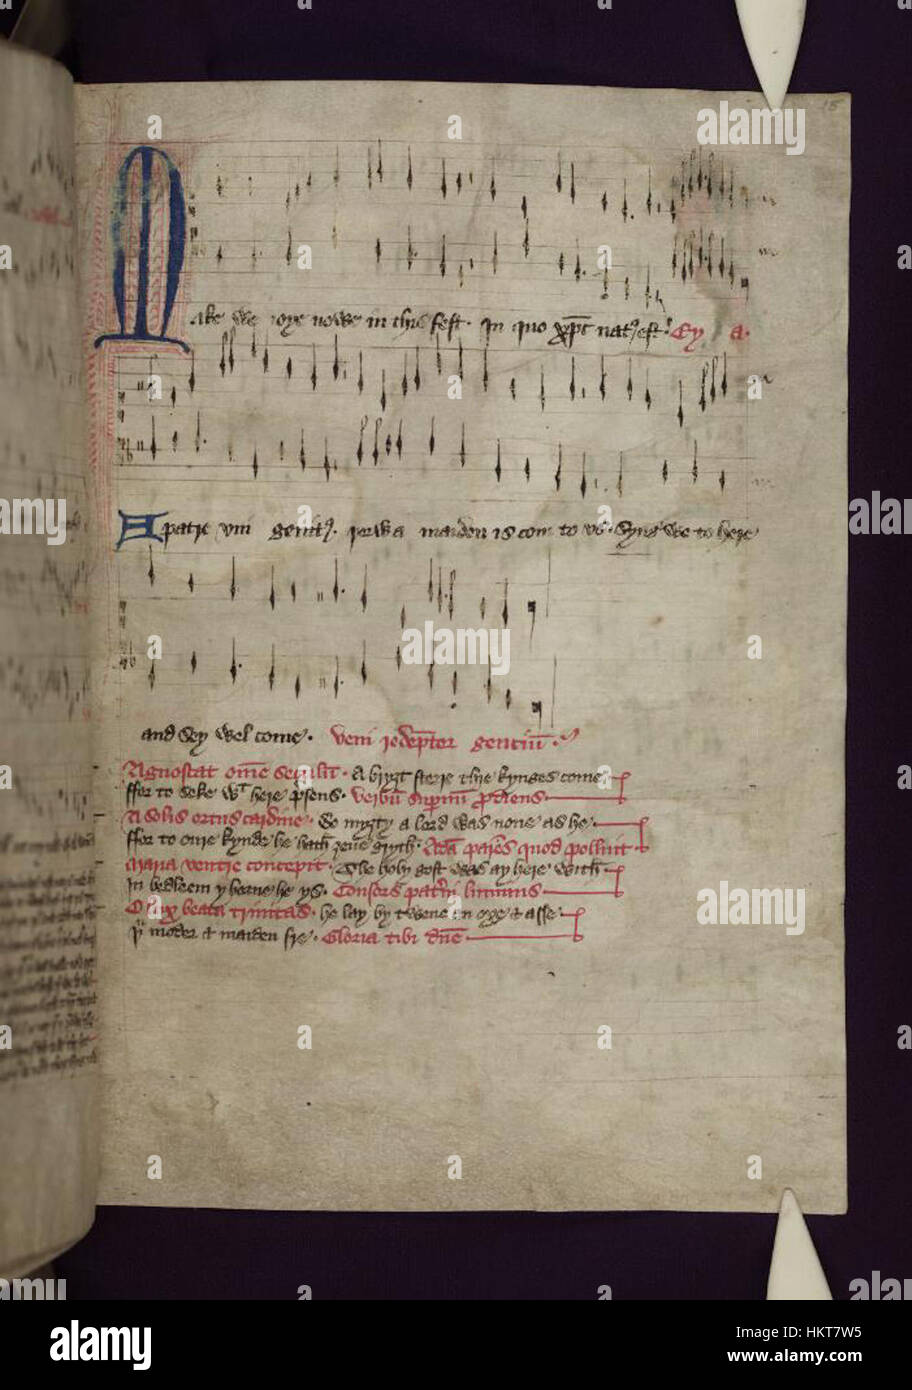 15
Make we ioye nowe in this fest. In quo xp̄c natꝰ est. Ey a.
A patre vni genitꝰ. iorwa maiden is com to vs. Syng we to here
and sey wel come. veni redēptor genciū.
Agnoscat om̄e seculū. A bryȝt sterre thre kynges come
ffor to seke wᵗ here p̄sens. verbū supernū prodiens
A solis ortus cardine. So myȝty a lord was none as he
ffor to oure kynde he hath ȝeue gryth. Adā parēs quod polluit
Maria ventre concepit. The holy gost was ay here with
In bedleem yborne he ys. Consors paterni luminis
O lux beata trinitas. he lay by twene an oxe & asse
þᵘ moder & maiden fre. Gloria tibi dn̄e
alamy
a
alamy
Image ID: HKT7W5
www.alamy.com